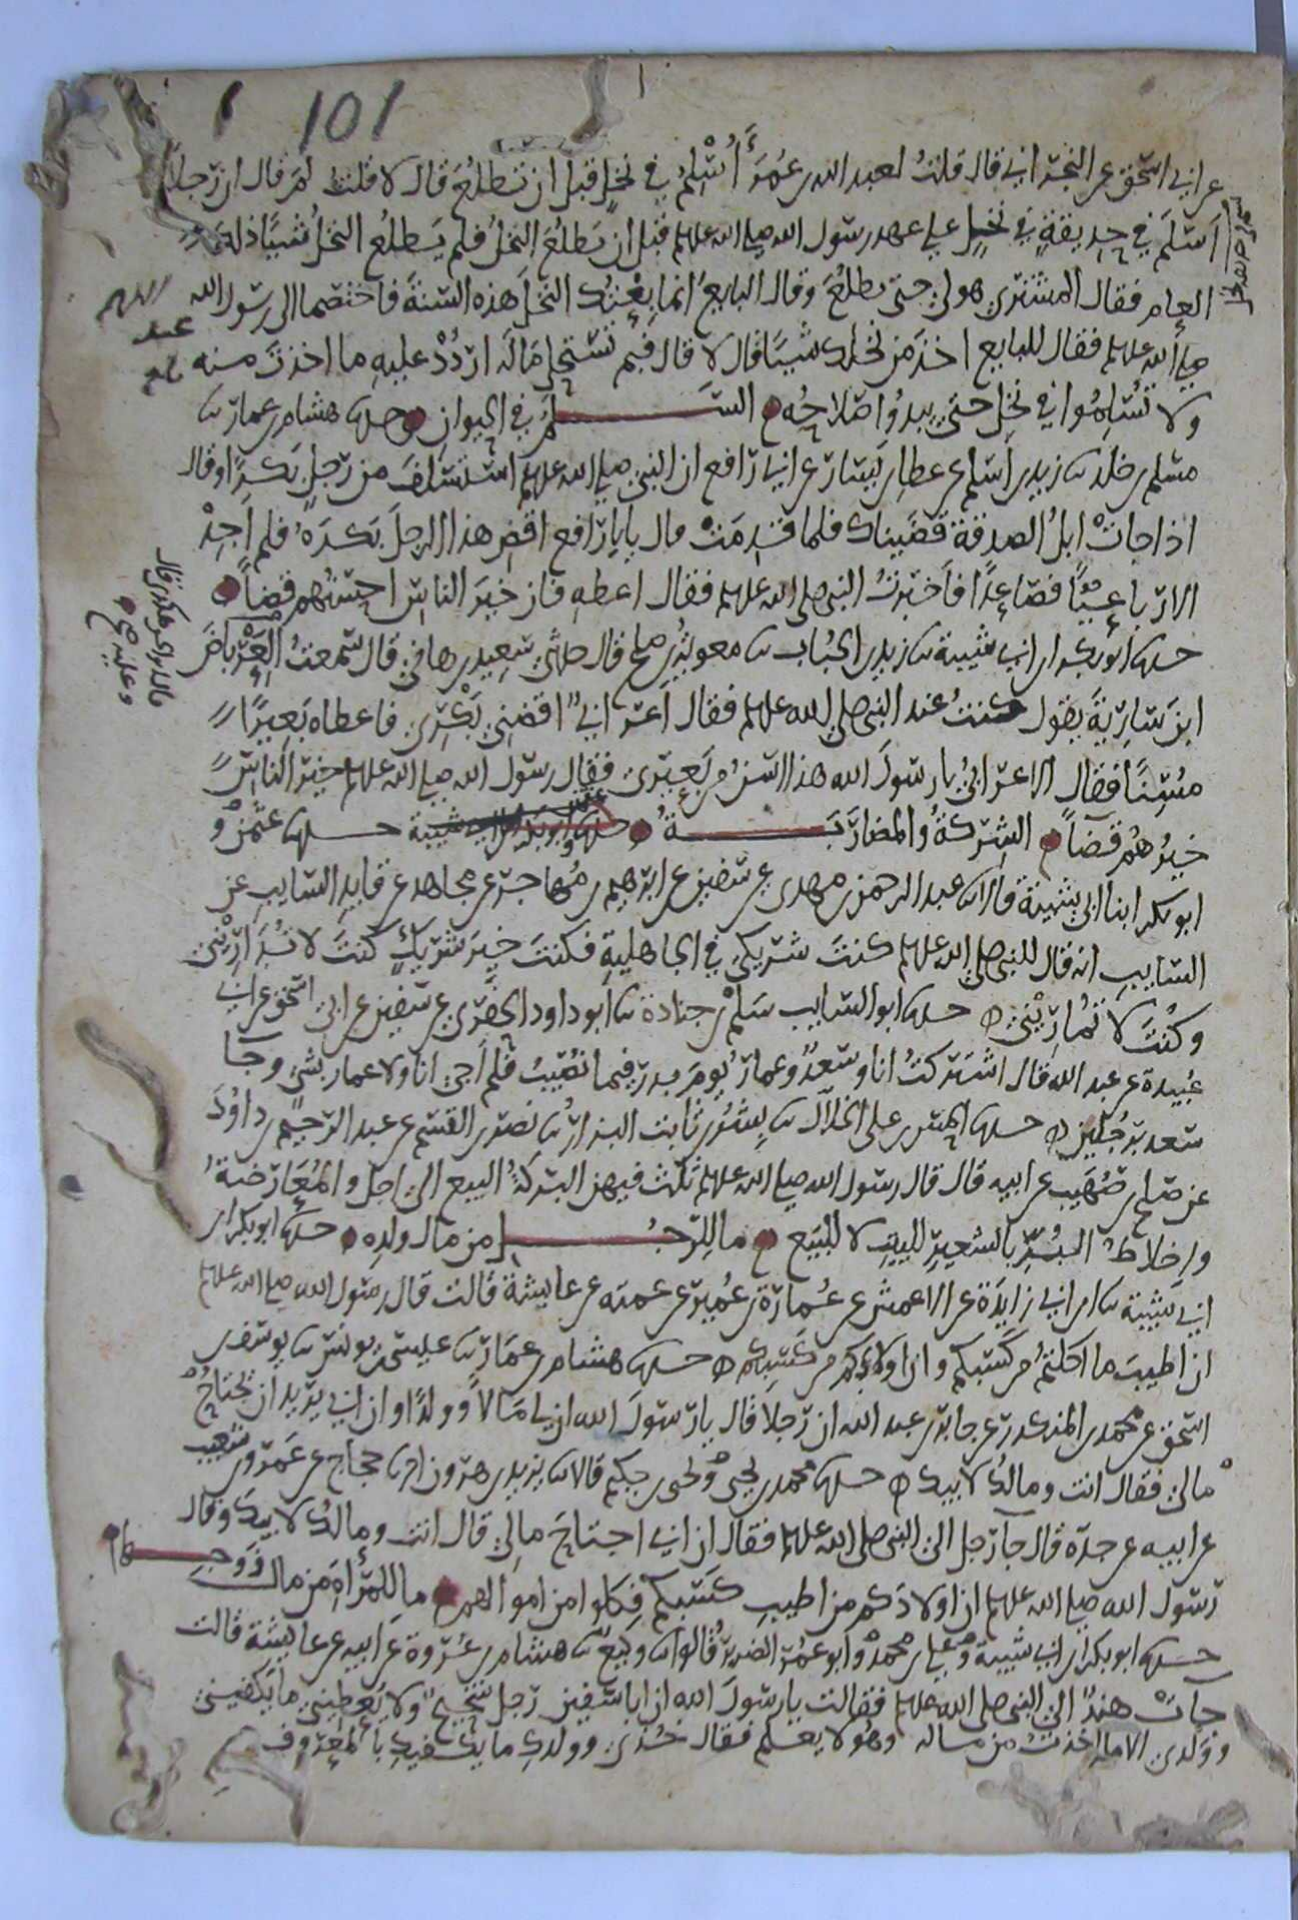 101
عن ابي اسحق عن النجراني قال قلت لعبد الله بن عمر أأسلم في نخل قبل ان تطلع قال لا قلت لم قال ان رجلا
اسلم في حديقة في نخل علي عهد رسول الله صلى الله عليه وسلم قبل ان تطلع النخل فلم يطلع النخل شيئا ذلك
العام فقال المشتري هو لي حتى يطلع وقال البايع انما بعتك النخل هذه السنة فاختصما الى رسول الله
صلى الله عليه وسلم فقال للبايع اخذ من نخلك شيئا قال لا قال فبم تستحل ماله اردد عليه ما اخذت منه
ولا تسلموا في نخل حتى يبدو صلاحه السلم في الحيوان حدثنا هشام بن عمار ثنا
مسلم بن خالد ثنا زيد بن اسلم عن عطا بن يسار عن ابي رافع ان النبي صلى الله عليه وسلم استسلف من رجل بكرا وقال
اذا جات ابل الصدقة قضيناك فلما قدمت قال يابا رافع اقض هذا الرجل بكره فلم اجد
الا رباعيا فصاعدا فاخبرت النبي صلى الله عليه وسلم فقال اعطه فان خير الناس احسنهم قضا
حدثنا ابو بكر ابن ابي شيبة ثنا زيد بن الحباب ثنا معوية بن صلح قال حدثني سعيد بن هاني قال سمعت العرباض
ابن سارية يقول كنت عند النبي صلى الله عليه وسلم فقال اعرابي اقضني بكري فاعطاه بعيرا
مسنا فقال الاعرابي يا رسول الله هذا اسن من بعيري فقال رسول الله صلى الله عليه وسلم خير الناس
خيرهم قضا الشركة والمضاربة حدثنا عثمن و
ابو بكر ابنا ابي شيبة قالا ثنا عبد الرحمن بن مهدي عن سفين عن ابرهيم بن مهاجر عن مجاهد عن قايد السايب عن
السايب انه قال للنبي صلى الله عليه وسلم كنت شريكي في الجاهلية فكنت خير شريك كنت لا تداريني
وكنت لا تماريني حدثنا ابو السايب سلم بن جنادة ثنا ابو داود الحفري عن سفين عن ابي اسحق عن ابي
عبيدة عن عبد الله قال اشتركت انا وسعد وعمار يوم بدر فيما نصيب فلم اجي انا ولا عمار بشي وجا
سعد برجلين حدثنا الحسن بن علي الخلال ثنا بشر بن ثابت البزار ثنا نصر بن القسم عن عبد الرحيم بن داود
عن صلح بن صهيب عن ابيه قال قال رسول الله صلى الله عليه وسلم ثلث فيهن البركة البيع الى اجل والمعارضة
واخلاط البر بالشعير للبيت لا للبيع ما للرجل من مال ولده حدثنا ابو بكر ابن
ابي شيبة ثنا ابن ابي زايدة عن الاعمش عن عمارة بن عمير عن عمته عن عايشة قالت قال رسول الله صلى الله عليه وسلم
ان اطيب ما اكلتم من كسبكم وان اولادكم من كسبكم حدثنا هشام بن عمار ثنا عيسى بن يونس ثنا يوسف بن
اسحق عن محمد بن المنكدر عن جابر بن عبد الله ان رجلا قال يا رسول الله ان لي مالا وولدا وان ابي يريد ان يجتاح
مالي فقال انت ومالك لابيك حدثنا محمد بن يحيى ويحيى بن حكيم قالا ثنا يزيد بن هرون انا حجاج عن عمرو بن شعيب
عن ابيه عن جده قال جا رجل الى النبي صلى الله عليه وسلم فقال ان ابي اجتاح مالي قال انت ومالك لابيك وقال
رسول الله صلى الله عليه وسلم ان اولادكم من اطيب كسبكم فكلوا من اموالهم ما للمرأة من مال زوجها
حدثنا ابو بكر ابن ابي شيبة وعلي بن محمد وابو عمر الضرير قالوا ثنا وكيع ثنا هشام بن عروة عن ابيه عن عايشة قالت
جات هند الى النبي صلى الله عليه وسلم فقالت يا رسول الله ان ابا سفين رجل شحيح ولا يعطيني ما يكفيني
وولدي الا ما اخذت من ماله وهو لا يعلم فقال خذي وولدك ما يكفيك بالمعروف